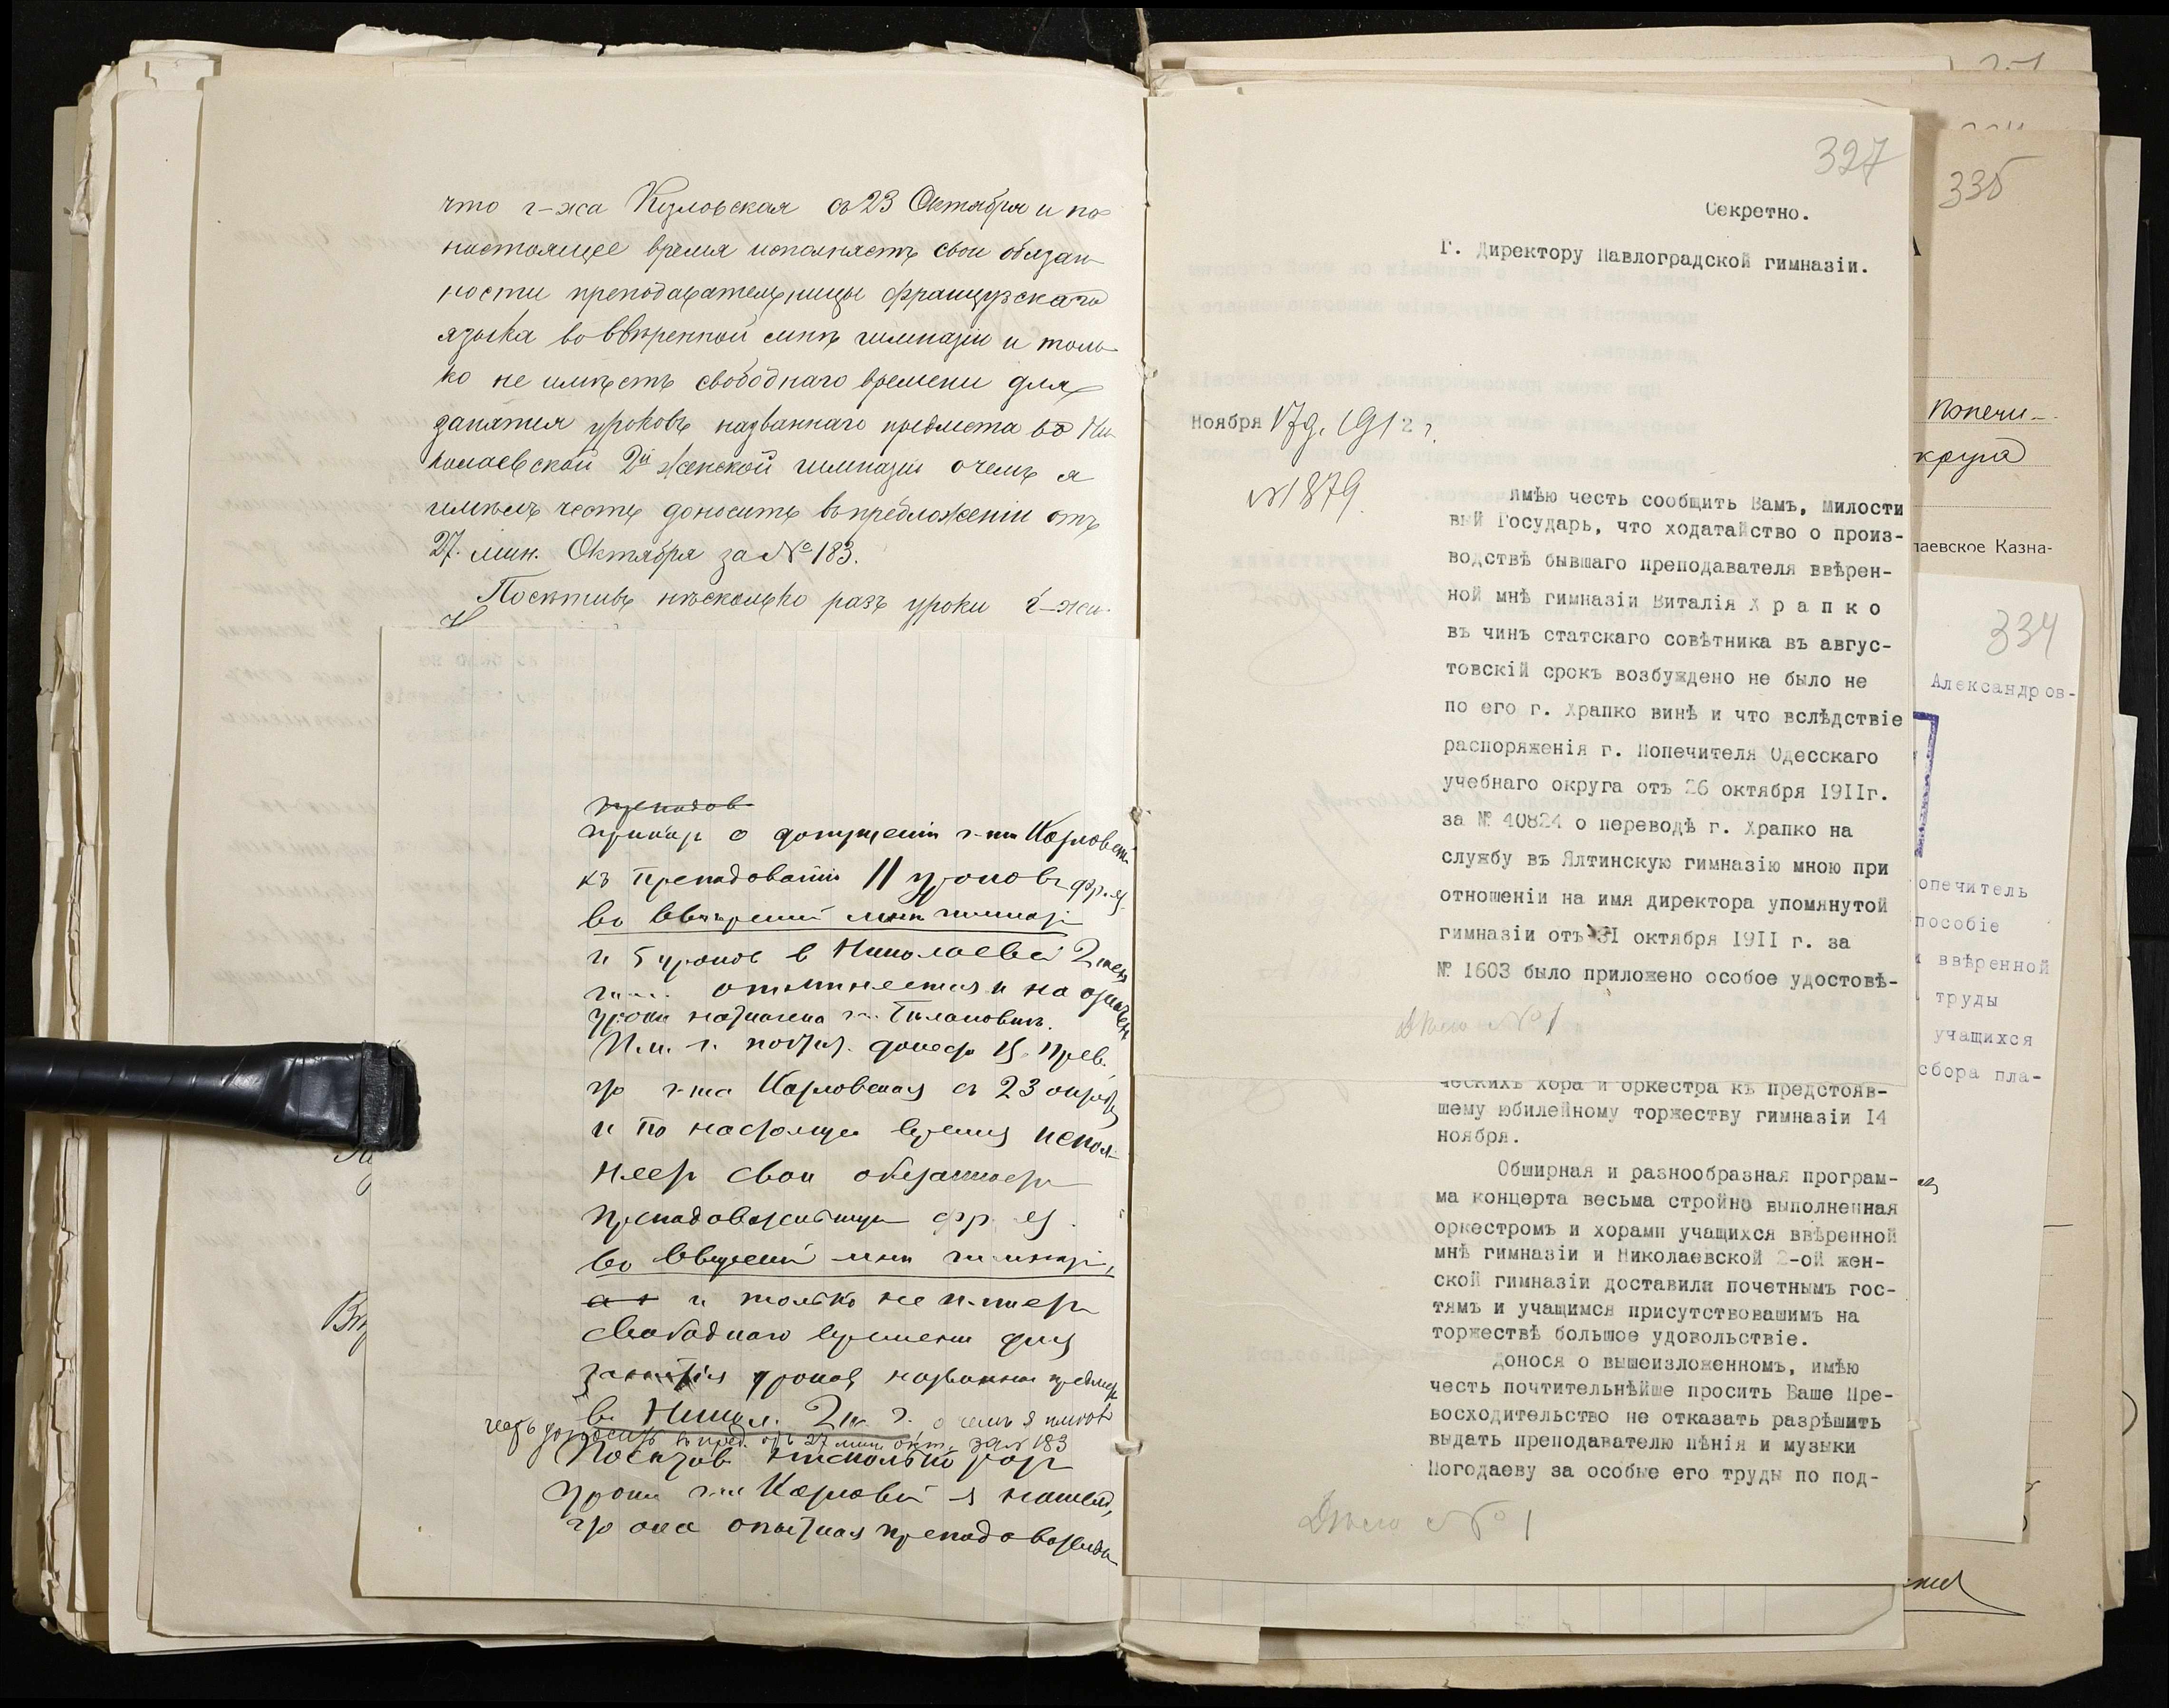 что г-жа Карловская съ 23 Октября и по
настоящее время исполняетъ свои обязан
ности преподавательницы французскаго
языка во ввѣренной мнѣ гимназіи и толь
ко не имѣетъ свободнаго времени для
занятія уроковъ названнаго предмета въ Ни
колаевской 2й женской гимназіи о чемъ я
имѣлъ честь доносить въ предложеніи отъ
27. мин. Октября за № 183.
Посѣтивъ нѣсколько разъ уроки г-жи
о допущеніи г-жи Карловск
къ преподаванію 11 уроковъ фр. я.
во ввѣренной мнѣ гимназ
и 5 уроков в Николаевск 2 жен
отмѣняется и на
уроки назначена
что г-жа Карловская съ 23 октяб
и по настоящее время испол-
няетъ свои обязанности
преподавательницы фр. яз.
во ввѣренной мнѣ гимназіи,
и только не имѣетъ
свободнаго времени для
занятія уроков названнаго предмета
в Никол. 2 ж. г. о чемъ я имѣлъ
честь доносить въ пред. отъ 27 мин. окт. за № 183
Посѣтив нѣсколько раз
уроки г-жи Карловской я нашелъ,
что она опытная преподавательн
327
Секретно.
Г. Директору Павлоградской гимназіи.
Ноября 17 д. 1912 г.
№ 1879.
Имѣю честь сообщить Вамъ, Милости
вый Государь, что ходатайство о произ-
водствѣ бывшаго преподавателя ввѣрен-
ной мнѣ гимназіи Виталія Х р а п к о
въ чинъ статскаго совѣтника въ авгус-
товскій срокъ возбуждено не было не
по его г. Храпко винѣ и что вслѣдствіе
распоряженія г. Попечителя Одесскаго
учебнаго округа отъ 26 октября 1911г.
за № 40824 о переводѣ г. Храпко на
службу въ Ялтинскую гимназію мною при
отношеніи на имя директора упомянутой
гимназіи отъ 31 октября 1911 г. за
№ 1603 было приложено особое удостовѣ-
Дѣло № 1
ческихъ хора и оркестра къ предстояв-
шему юбилейному торжеству гимназіи 14
ноября.
Обширная и разнообразная програм-
ма концерта весьма стройно выполненная
оркестромъ и хорами учащихся ввѣренной
мнѣ гимназіи и Николаевской 2-ой жен-
ской гимназіи доставила почетнымъ гос-
тямъ и учащимся присутствовашимъ на
торжествѣ большое удовольствіе.
Донося о вышеизложенномъ, имѣю
честь почтительнѣйше просить Ваше Пре-
восходительство не отказать разрѣшить
выдать преподавателю пѣнія и музыки
Погодаеву за особые его труды по под-
Дѣло № 1
335
Попечи-
круга
лаевское Казна-
334
Александров-
опечитель
пособіе
и ввѣренной
труды
учащихся
сбора пла-